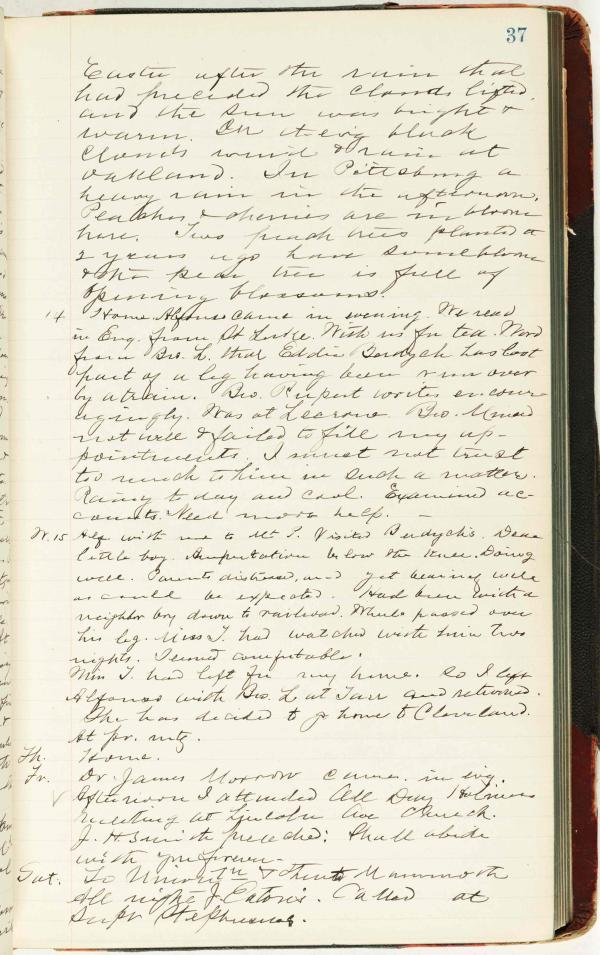 37
Easter after the rain that
had preceded the clouds lifted
and the sun was bright &
warm. In the evg black
clouds wind & rain at
Oakland. In Pittsburg a
heavy rain in the afternoon.
Peaches & cherries are in bloom
here. Two peach trees planted
2 years ago have some bloom
& the pear tree is full of
opening blossoms.
14 Home. Alfonso came in evening. We read
in Eng. from St Luke. With us for tea. Word
from Bro. L. that Eddie Berdych has lost
part of a leg having been run over
by a train. Bro. Rupert writes encour-
agingly. Was at Leecrone. Bro.
not well & failed to fill my ap-
pointments. I must not trust
too much to him in such a matter.
Rainy to day and cool. Examined ac-
counts. Need more help. —
W. 15 Alf with me to Mt. P. Visited Berdychs. Dear
little boy. Amputation below the knee. Doing
well. Parents distressed, and yet bearing well
as could be expected. Had been with a
neighbor boy down to railroad. Wheels passed over
his leg. Miss T. had watched with him two
nights. Seemed comfortable.
Miss T. had left for my home. So I left
Alfonso with Bro. L at Tarr and returned.
She has decided to go home to Cleveland.
At pr. mtg.
Th. Home.
Fr. Dr. James Morrow came in evg.
Afternoon I attended All Day Holiness
meeting at Lincoln Ave Church.
J. H. Smith preached: Shall abide
with you forever.
Sat. To & then to Mammoth
All night J. Eaton's. Called at
Supt Stephensons.